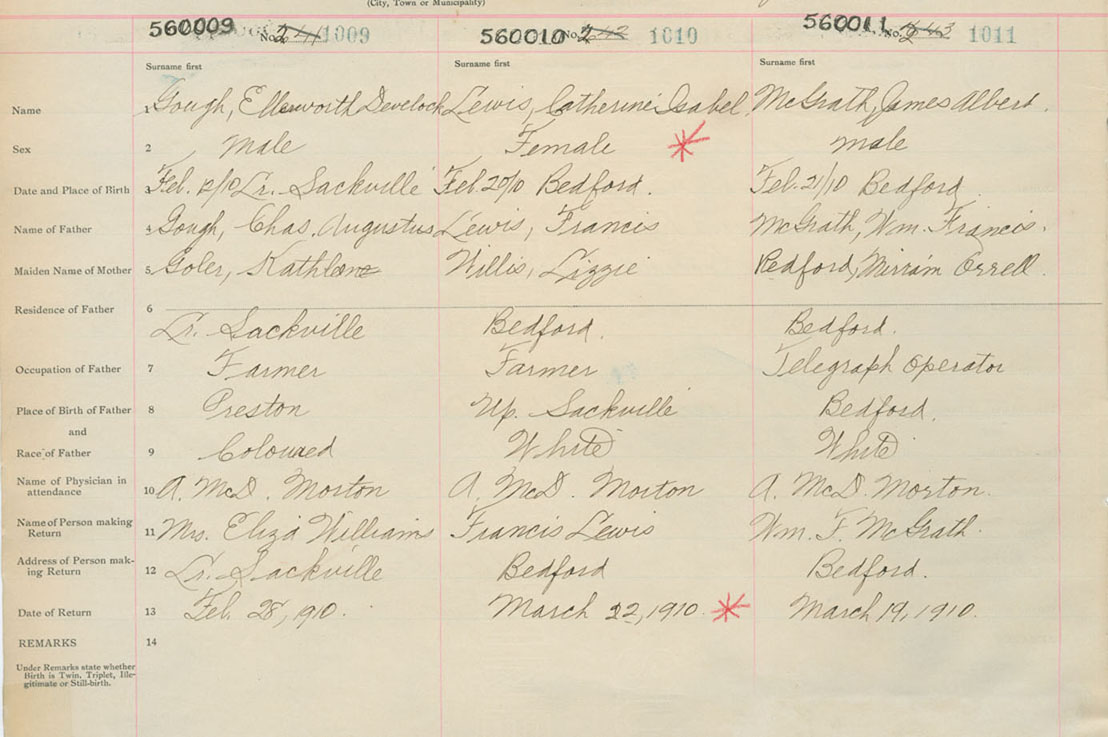 (City, Town or Municipality)
560009 No. 1009 560010 No. 1010 560011 No. 1011
Surname first Surname first Surname first
Name 1 Gough, Ellsworth Develock Lewis, Catherine Isabel McGrath, James Albert.
Sex 2 Male Female male
Date and Place of Birth 3 Feb. 12/10 Lr. Sackville Feb. 20/10 Bedford. Feb. 21/10 Bedford
Name of Father 4 Gough, Chas. Augustus Lewis, Francis McGrath, Wm. Francis.
Maiden Name of Mother 5 Goler, Willis, Lizzie Redford, Mirriam Orrell
Residence of Father 6
Lr. Sackville Bedford. Bedford.
Occupation of Father 7 Farmer Farmer Telegraph Operator
Place of Birth of Father 8 Preston Up. Sackville Bedford.
and
Race of Father 9 Coloured White White
Name of Physician in
attendance 10 A. McD. Morton A. McD. Morton A. McD. Morton.
Name of Person making
Return 11 Mrs. Eliza Williams Francis Lewis Wm. F. McGrath.
Address of Person mak-
ing Return 12 Lr. Sackville Bedford Bedford.
Date of Return 13 Feb. 28, 1910. March 22, 1910. March 19, 1910.
REMARKS 14
Under Remarks state whether
Birth is Twin, Triplet, Ille-
gitimate or Still-birth.